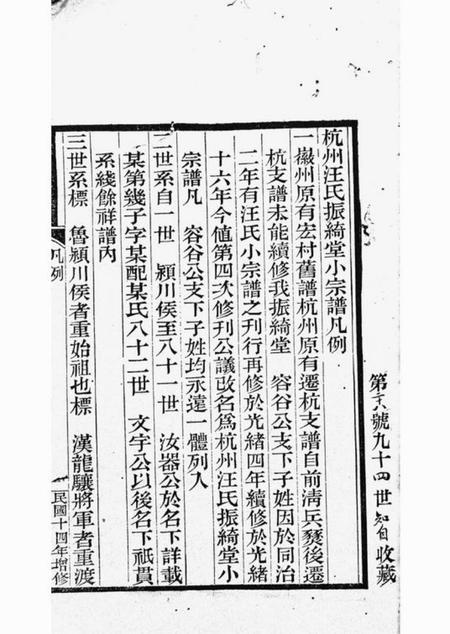 第十八號九十四世知自收藏
杭州汪氏振綺堂小宗譜凡例
一徽州原有宏村舊譜杭州原有遷杭支譜自前淸兵燹後遷
杭支譜未能續修我振綺堂 容谷公支下子姓因於同治
二年有汪氏小宗譜之刊行再修於光緒四年續修於光緒
十六年今値第四次修刊公議改名爲杭州汪氏振綺堂小
宗譜凡 容谷公支下子姓均永遠一體列入
二世系自一世 潁川侯至八十一世 汝器公於名下詳載
某第幾子字某配某氏八十二世 文宇公以後名下祇貫
系綫餘祥譜內
三世系標 魯潁川侯者重始祖也標 漢龍驤將軍者重渡
凡例
民國十四年增修